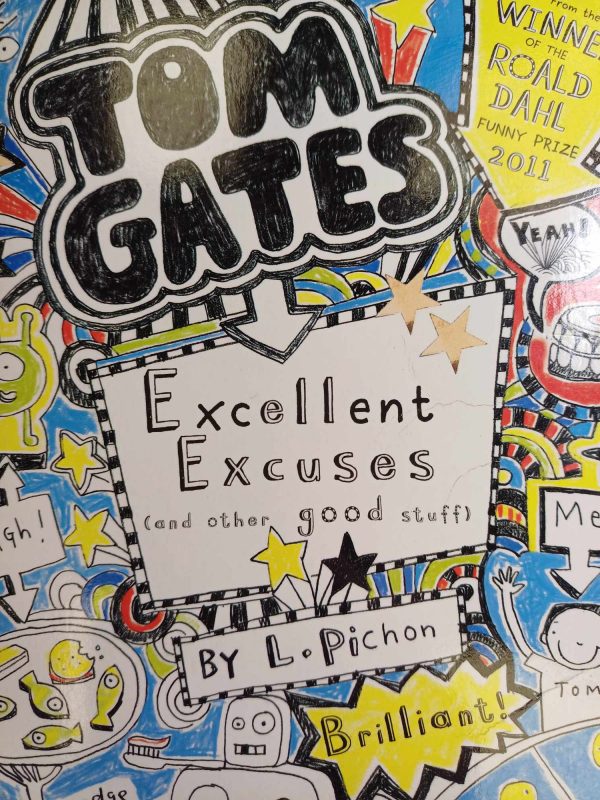 From the
WINNE
OF THE
ROALD
DAHL
FUNNY PRIZE
2011
TOM
GATES
YEAH!
Excellent
Excuses
(and other good stuff)
Me
BY L. Pichon
TOM
Brilliant!